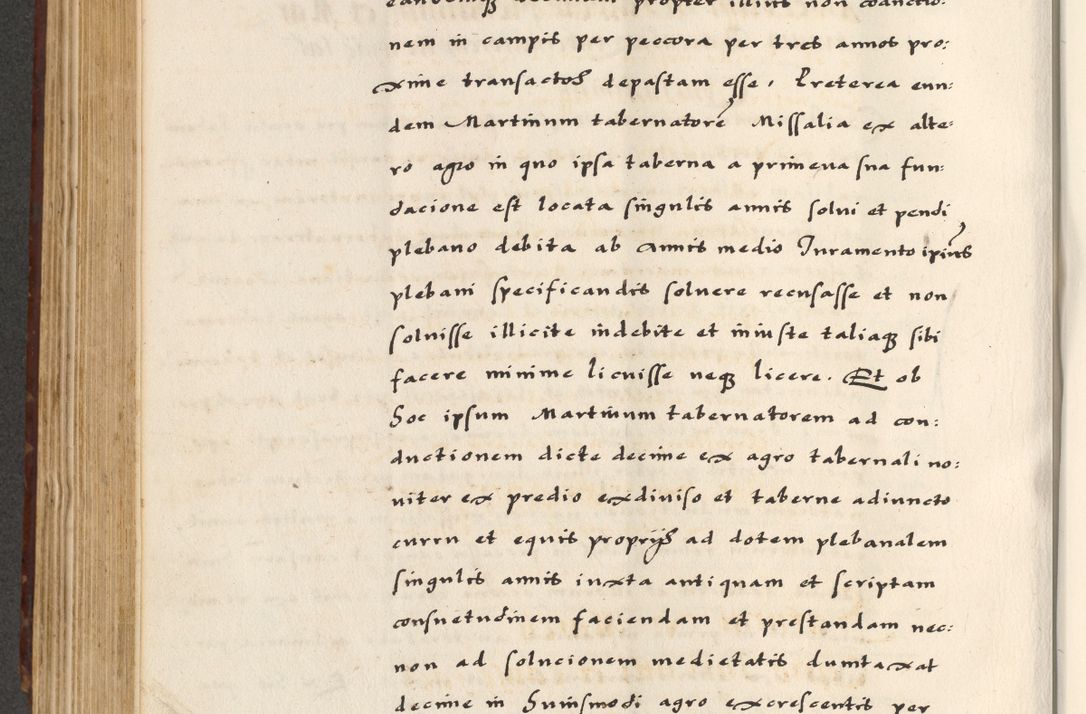 eandemq decimam propter illius non coanctio:
nem in campis per peccora per tres annos pro:
xime transactos depastam esse. Preterea eun:
dem Martinum tabernatorẽ Missalia ex alte:
ro agro in quo ipsa taberna a primeva sua fun:
dacione est locata singulis annis solvi et pendi
plebano debita ab annis medio Juramento ipius
plebani specificandis soluere recusasse et non
soluisse illicite indebite et iniuste taliaq sibi
facere minime licuisse neq licere. Et ob
hoc ipsum Martinum tabernatorem ad con:
ductionem dicte decime ex agro tabernali no:
uiter ex predio exdiviso et taberne adiuncto
curru et equis proprijs ad dotem plebanalem
singulis annis iuxta antiquam et scriptam
consuetudinem faciendam et prestandam nec:
non ad solucionem medietatis dumtaxat
decime in huiusmodi agro excrescentis per